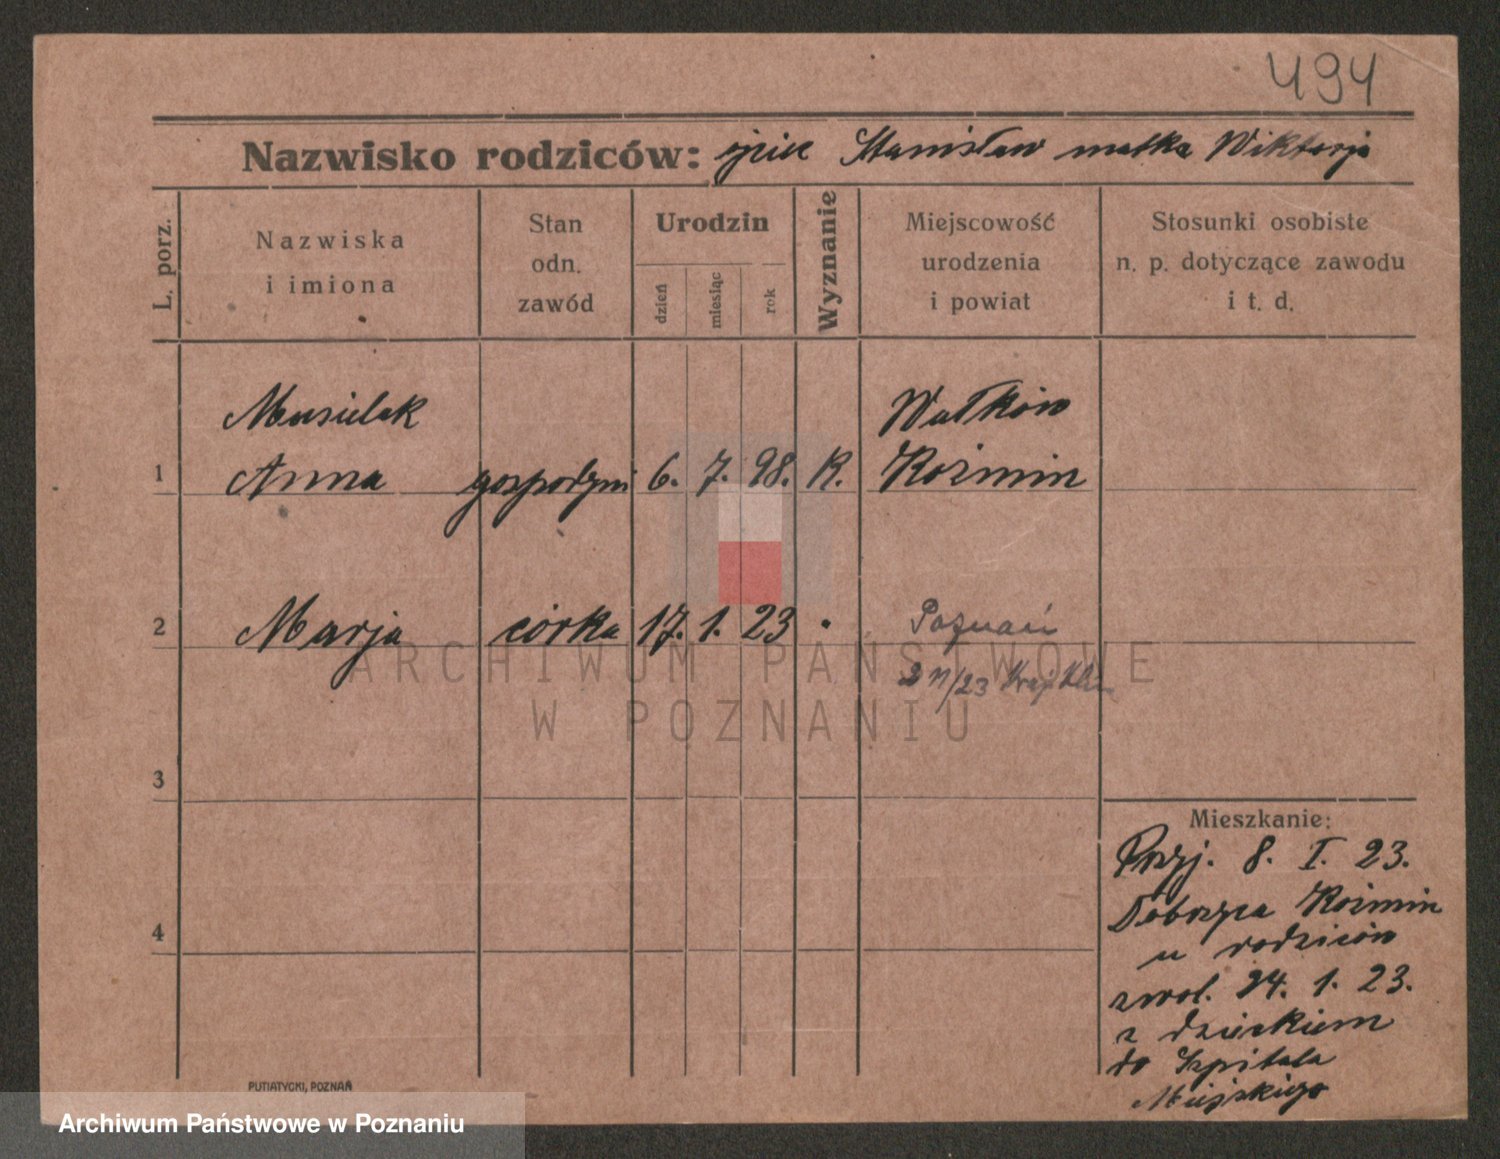 494
Nazwisko rodziców: ojciec Stanisław matka Wiktorja
L. porz.
Nazwiska
i imiona
Stan
odn.
zawód
Urodzin
dzień
miesiąc
rok
Wyznanie
Miejscowość
urodzenia
i powiat
Stosunki osobiste
n. p. dotyczące zawodu
i t. d.
Musielak Wałków
1 Anna gospodyni 6. 7. 98. R. Koźmin
2 Marja córka 17. 1. 23 Poznań
2 11/23 Kraj Klin
3
4
Mieszkanie:
Przyj. 8. I. 23.
Dobrzyca Koźmin
u rodziców
zwol. 24. 1. 23.
z dzieckiem
do Szpitala
Miejskiego
PUTIATYCKI, POZNAŃ
ARCHIWUM PAŃSTWOWE
W POZNANIU
Archiwum Państwowe w Poznaniu